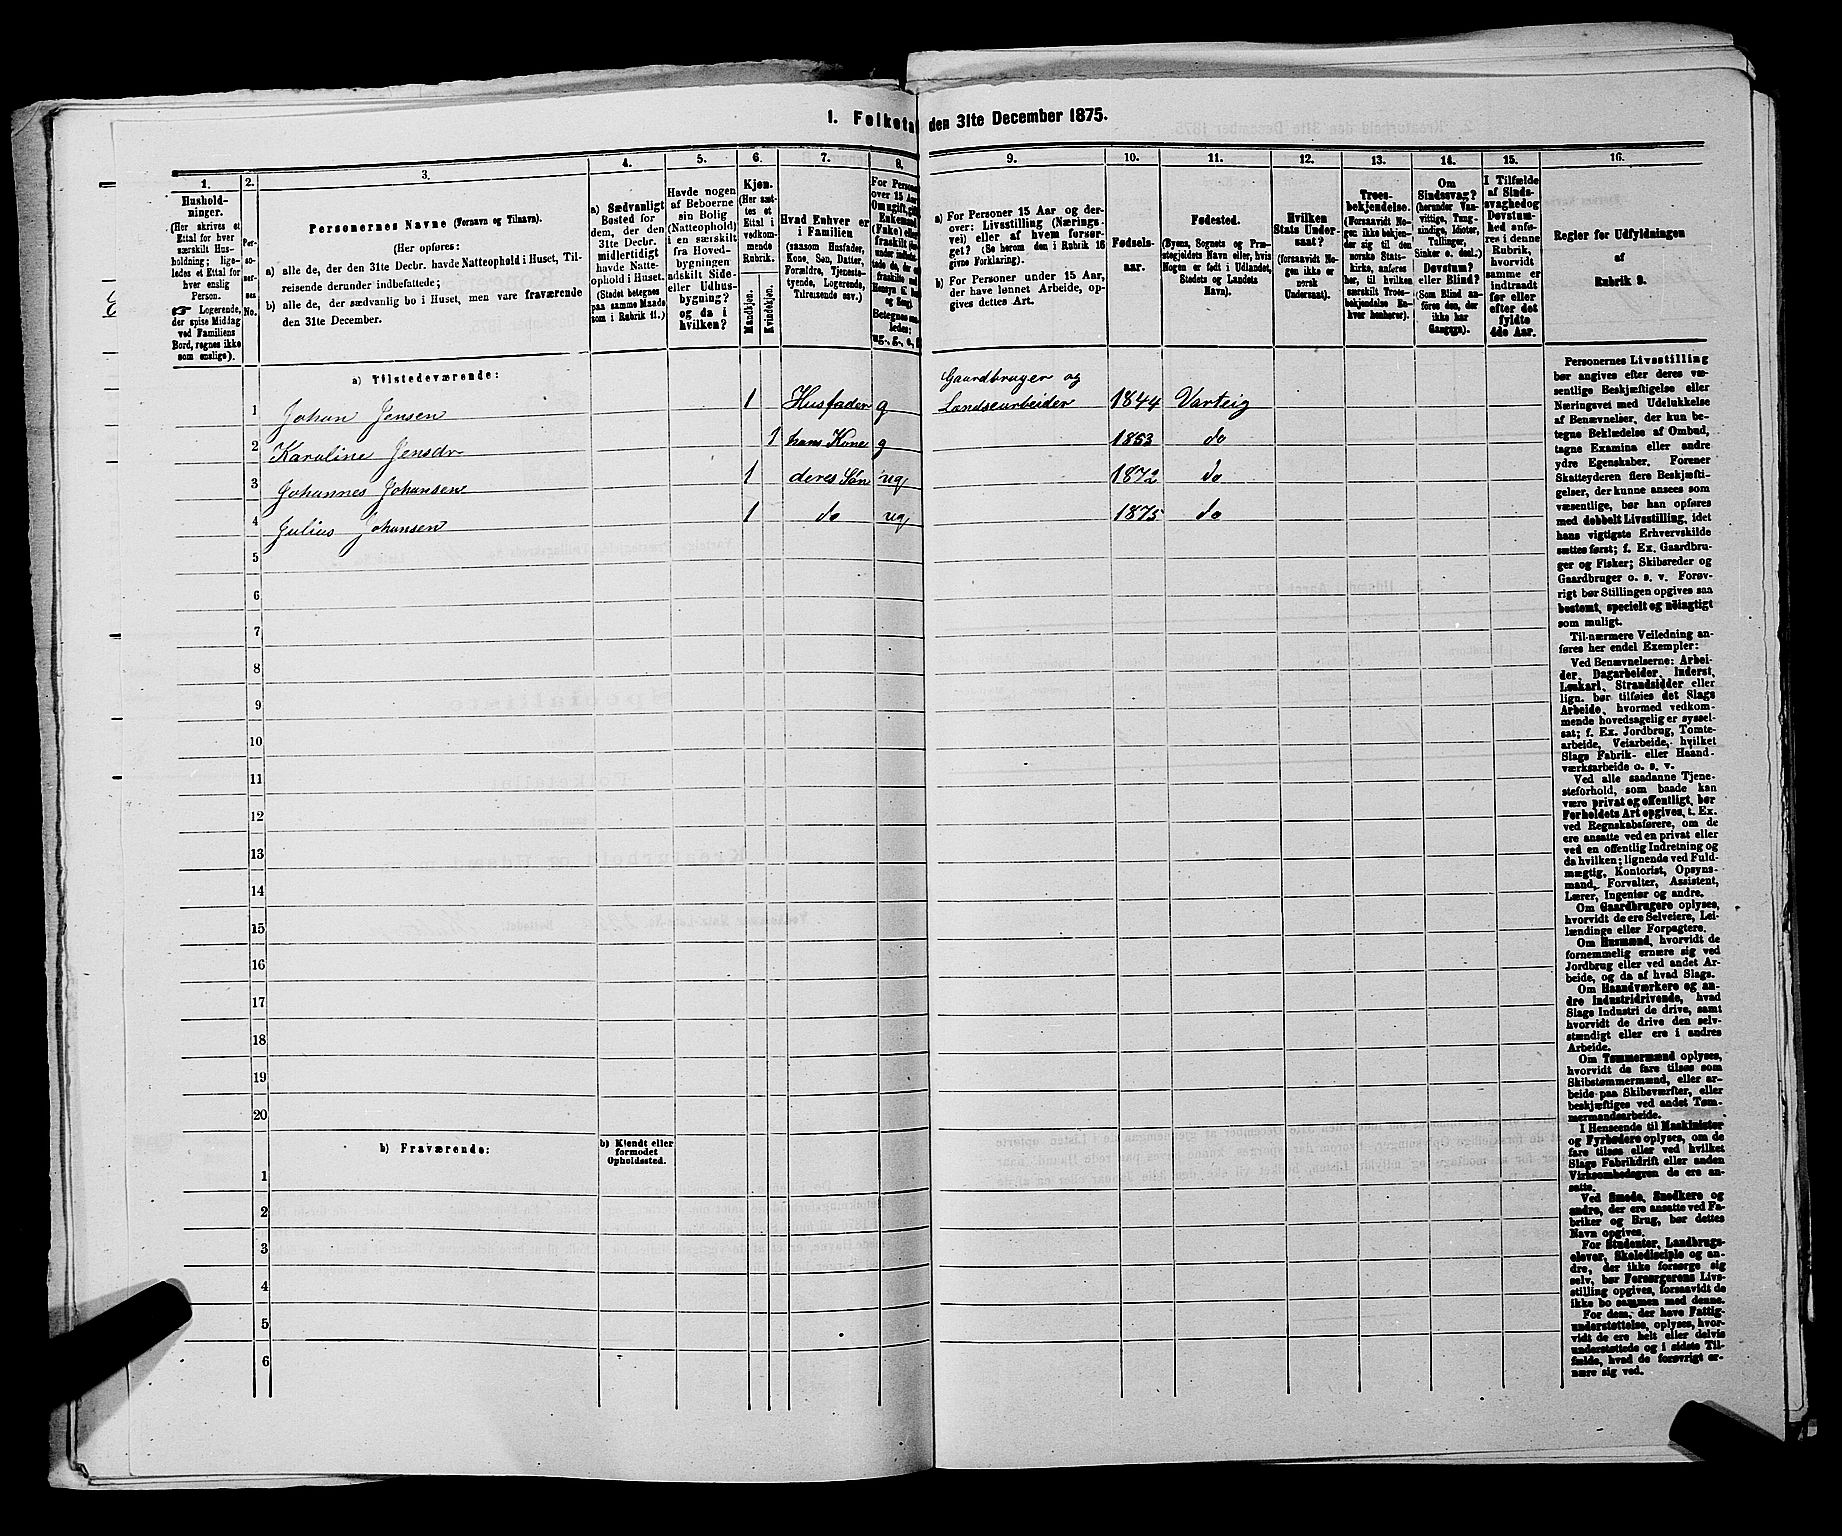 1. Folketal den 31te December 1875.
1.
2.
3.
4.
5.
6.
7.
8.
9.
10.
11.
12.
13.
14.
15.
16.
Hushold-
ninger.
(Her skrives et
Ettal for hver
særskilt Hus-
holdning; lige-
ledes et Ettal for
hver enslig
Person.
☞ Logerende,
der spise Middag
ved Familiens
Bord, regnes ikke
som enslige).
Per-
soner-
nes
No.
Personernes Navne (Fornavn og Tilnavn).
(Her opføres:
a) alle de, der den 31te Decbr. havde Natteophold i Huset, Til-
reisende derunder indbefattede;
b) alle de, der sædvanlig bo i Huset, men vare fraværende
den 31te December.
a) Sædvanligt
Bosted for
dem, der den
31te Decbr.
midlertidigt
havde Natte-
ophold i Huset.
(Stedet betegnes
paa samme Maade
som i Rubrik 11.)
Havde nogen
af Beboerne
sin Bolig
(Natteophold)
i en særskilt
fra Hoved-
bygningen
adskilt Side-
eller Udhus-
bygning?
og da i
hvilken?
Kjøn.
(Her sæt-
tes et
Ettal i
vedkom-
mende
Rubrik.
Mandkjøn.
Kvindekjøn.
Hvad Enhver er
i Familien
(saasom Husfader,
Kone, Søn, Datter,
Forældre, Tjeneste-
tyende, Logerende,
Tilreisende osv.)
For Person
over 15 Aar
a) For Personer 15 Aar og der-
over: Livsstilling (Nærings-
vei) eller af hvem forsør-
get? (Se herom den i Rubrik 16
givne Forklaring).
b) For Personer under 15 Aar,
der have lønnet Arbeide, op-
gives dettes Art.
Fødsels-
aar.
Fødested.
(Byens, Sognets og Præ-
stegjeldets Navn eller, hvis
Nogen er født i Udlandet,
Stedets og Landets
Navn).
Hvilken
Stats Under-
saat?
(forsaavidt No-
gen ikke er
norsk
Undersaat).
Troes-
bekjendelse.
(Forsaavidt No-
gen ikke bekjen-
der sig til den
norske Stats-
kirke, anføres
her, til hvilken
særskilt Troes-
bekjendelse En-
hver henhører).
Om
Sindssvag?
(herunder Van-
vittige, Tung-
sindige, Idioter,
Tullinger,
Sinker o. desl.)
Døvstum?
eller Blind?
(Som Blind an-
føres den, der
ikke har
Gangsyn).
I Tilfælde
af Sinds-
svaghed og
Døvstum-
hed anfø-
res i denne
Rubrik,
hvorvidt
samme er
indtraadt
før eller
efter det
fyldte
4de Aar.
Regler for Udfyldningen
af
Rubrik 9.
a) Tilstedeværende:
1 Johan Jensen 1 Husfader g Gaardbruger og
Landsearbeider 1844 Varteig
2 Karoline Jensdr 1 hans Kone g 1853 do
3 Johannes Johansen 1 deres Søn ug 1872 do
4 Julius Johansen 1 do ug 1875 do
5
6
7
8
9
10
11
12
13
14
15
16
17
18
19
20
b) Fraværende:
b) Kjendt eller
formodet
Opholdssted.
1
2
3
4
5
6
Personernes Livsstilling
bør angives efter deres væ-
sentlige Beskjæftigelse eller
Næringsvei med Udelukkelse
af Benævnelser, der kun be-
tegne Beklædelse af Ombud,
tagne Examina eller andre
ydre Egenskaber. Forener
Skatteyderen flere Beskjæfti-
gelser, der kunne ansees som
væsentlige, bør han opføres
med dobbelt Livsstilling, idet
hans vigtigste Erhvervskilde
sættes først; f. Ex. Gaardbru-
ger og Fisker; Skibsreder og
Gaardbruger o. s. v. Forøv-
rigt bør Stillingen opgives saa
bestemt, specielt og nøiagtigt
som muligt.
Til nærmere Veiledning an-
føres her endel Exempler:
Ved Benævnelserne: Arbei-
der, Dagarbeider, Inderst,
Løskarl, Strandsidder eller
lign. bør tilføies det Slags
Arbeide, hvormed vedkom-
mende hovedsagelig er syssel-
sat; f. Ex. Jordbrug, Tomte-
arbeide, Veiarbeide, hvilket
Slags Fabrik- eller Haand-
værksarbeide o. s. v.
Ved alle saadanne Tjene-
steforhold, som baade kan
være privat og offentligt, bør
Forholdets Art opgives, t. Ex.
ved Regnskabsførere, om de
ere ansatte ved en privat eller
ved en offentlig Indretning og
da hvilken; lignende ved Fuld-
mægtig, Kontorist, Opsyns-
mand, Forvalter, Assistent,
Lærer, Ingeniør og andre.
Om Gaardbrugere oplyses,
hvorvidt de ere Selveiere, Lei-
lændinge eller Forpagtere.
Om Husmænd, hvorvidt de
fornemmelig ernære sig ved
Jordbrug eller ved andet Ar-
beide, og da af hvad Slags.
Om Haandværkere og an-
dre Industridrivende, hvad
Slags Industri de drive, samt
hvorvidt de drive den selv-
stændigt eller ere i andres
Arbeide.
Om Tømmermænd oplyses,
hvorvidt de fare tilsøs som
Skibstømmermænd, eller ar-
beide paa Skibsværfter, eller
beskjæftiges ved andet Tøm-
mermandsarbeide.
I Henseende til Maskinister
og Fyrbødere oplyses, om de
fare tilsøs eller ved hvilket
Slags Fabrikdrift eller anden
Virksomhedsgren de ere an-
satte.
Ved Smede, Snedkere og
andre, der ere ansatte ved Fa-
briker og Brug, bør dettes
Navn opgives.
For Studenter, Landbrugs-
elever, Skoledisciple og an-
dre, der ikke forsørge sig
selv, bør Forsørgerens Livs-
stilling opgives, forsaavidt de
ikke bo sammen med denne.
For dem, der have Fattig-
understøttelse, oplyses, hvor-
vidt de ere helt eller delvis
understøttede og i sidste Til-
fælde, hvad de forøvrigt er-
nære sig ved.